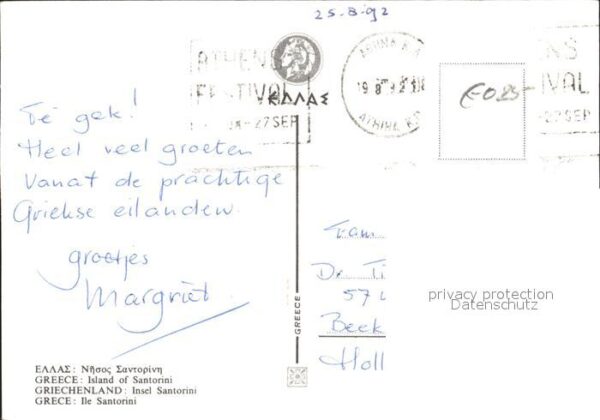 25-8-92
ATHENS
FESTIVAL
-27 SEP
ΕΛΛΑΣ
ATHINA
19
ATHINA
IVAL
-27 SEP
€0.85
Te gek!
Heel veel groeten
Vanaf de prachtige
Griekse eilanden.
groetjes
Margriet
Fam
Dr. Ti
57
Beek
Holl
privacy protection
Datenschutz
GREECE
ΕΛΛΑΣ: Νῆσος Σαντορίνη
GREECE: Island of Santorini
GRIECHENLAND: Insel Santorini
GRECE: Ile Santorini